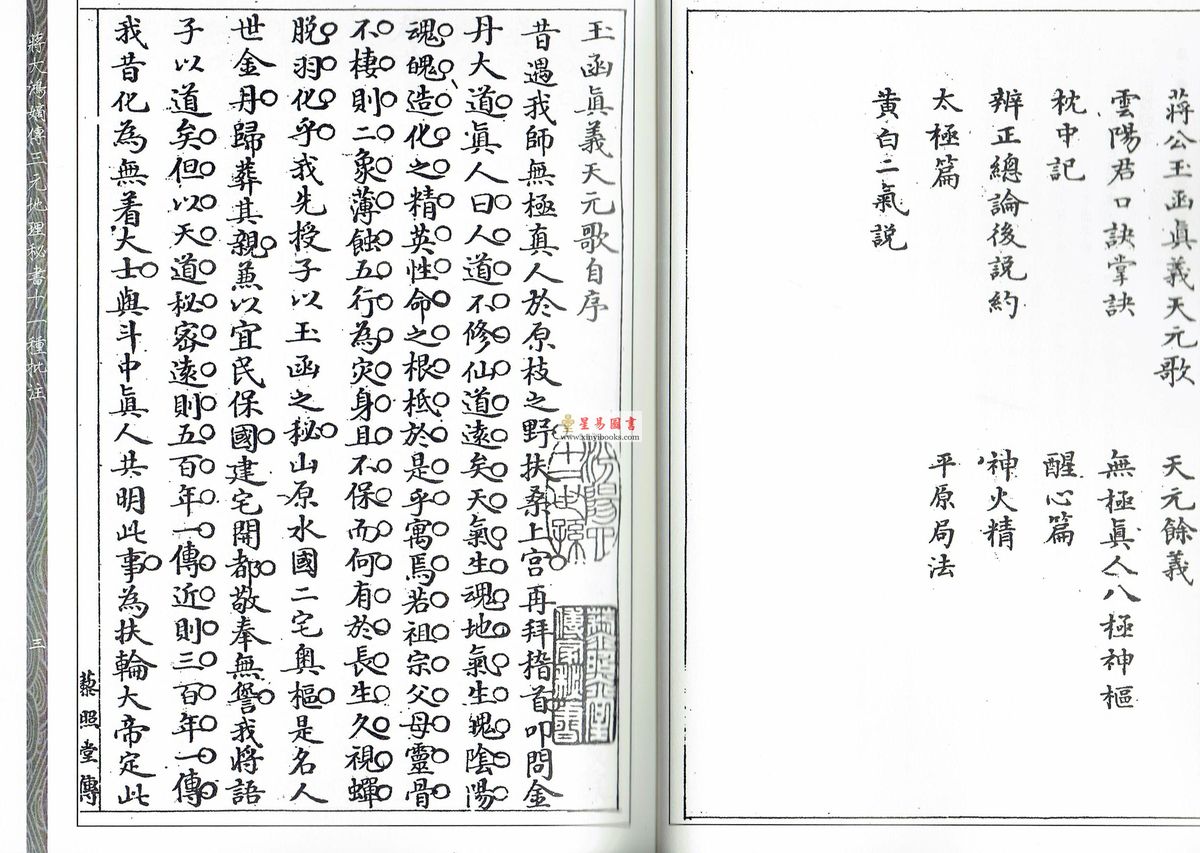 蔣公玉函眞義天元歌
天元餘義
雲陽君口訣掌訣
無極眞人八極神樞
枕中記
醒心篇
辨正總論後説約
神火精
太極篇
平原局法
黄白二氣説
玉函眞義天元歌自序
昔遇我師無極真人於原枝之野扶桑上宮再拜稽首叩問金
丹大道眞人曰人道不修仙道遠矣天氣生魂地氣生魄陰陽
魂魄造化之精英性命之根柢於是乎寓焉若祖宗父母靈骨
不棲則二象薄蝕五行為灾身且不保而何有於長生久視蟬
脱羽化乎我先授子以玉函之秘山原水國二宅奥樞是名人
世金丹歸葬其親兼以宜民保國建宅開都敬奉無諐我將語
子以道矣但以天道秘密遠則五百年一傳近則三百年一傳
我昔化為無着大士與斗中眞人共明此事為扶輪大帝定此
藜照堂傳
蔣大鴻嫡傳三元地理秘書十一種批注
三
星易圖書
www.xinyibooks.com